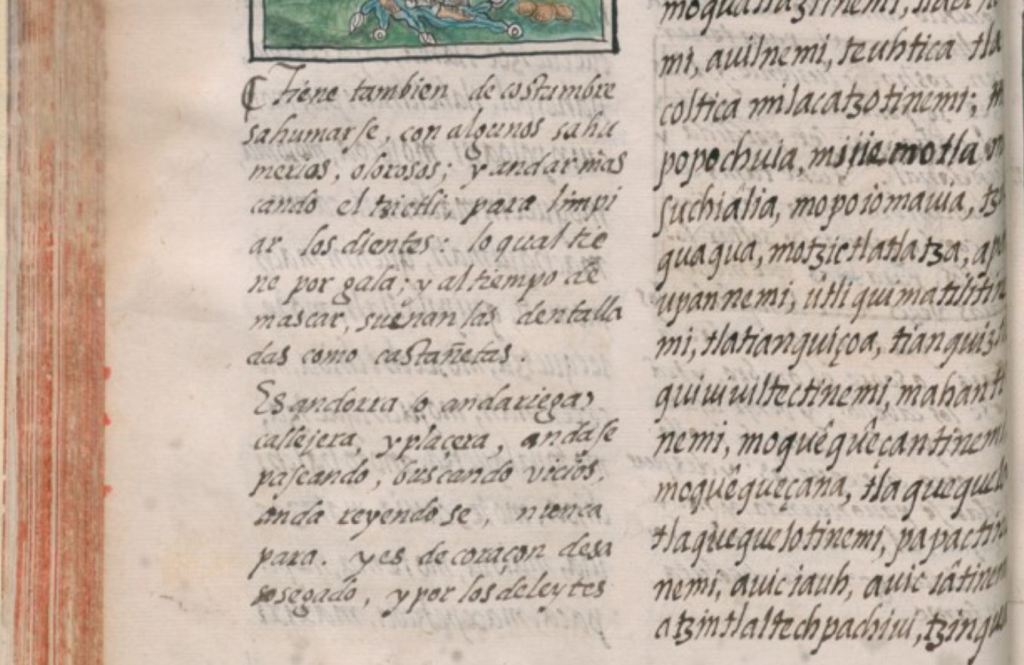 ¶ Tiene tambien de costumbre
sahumarse, con algunos sahu
merios, olorosos; y andar mas
cando el tzictli, para limpi
ar los dientes: lo qual tie
ne por gala; y al tiempo de
mascar, suenan las dentalla
das como castañetas.
Es andorra o andariega,
callejera, y placera, andase
paseando, buscando vicios,
anda reyendose, nunca
para. y es de coraçon desa
sosegado, y por los deleytes
mi, auilnemi, teuhtica tla
coltica milacatzotinemi;
popochuia, mijiemotla
suchialia, mopoiomauia,
quaqua, motzictlatlatza,
upannemi, utli quimatilitine
mi, tlatianguiçoa, tianquiz
quiuiuiltectinemi, mahan
nemi, moquêqûeçantinem
moquêqueçana, tlaquequelo
tlaquequelotinemi, papacti
nemi, auic iauh, auic iâtinem
atzintlaltechpachiui,